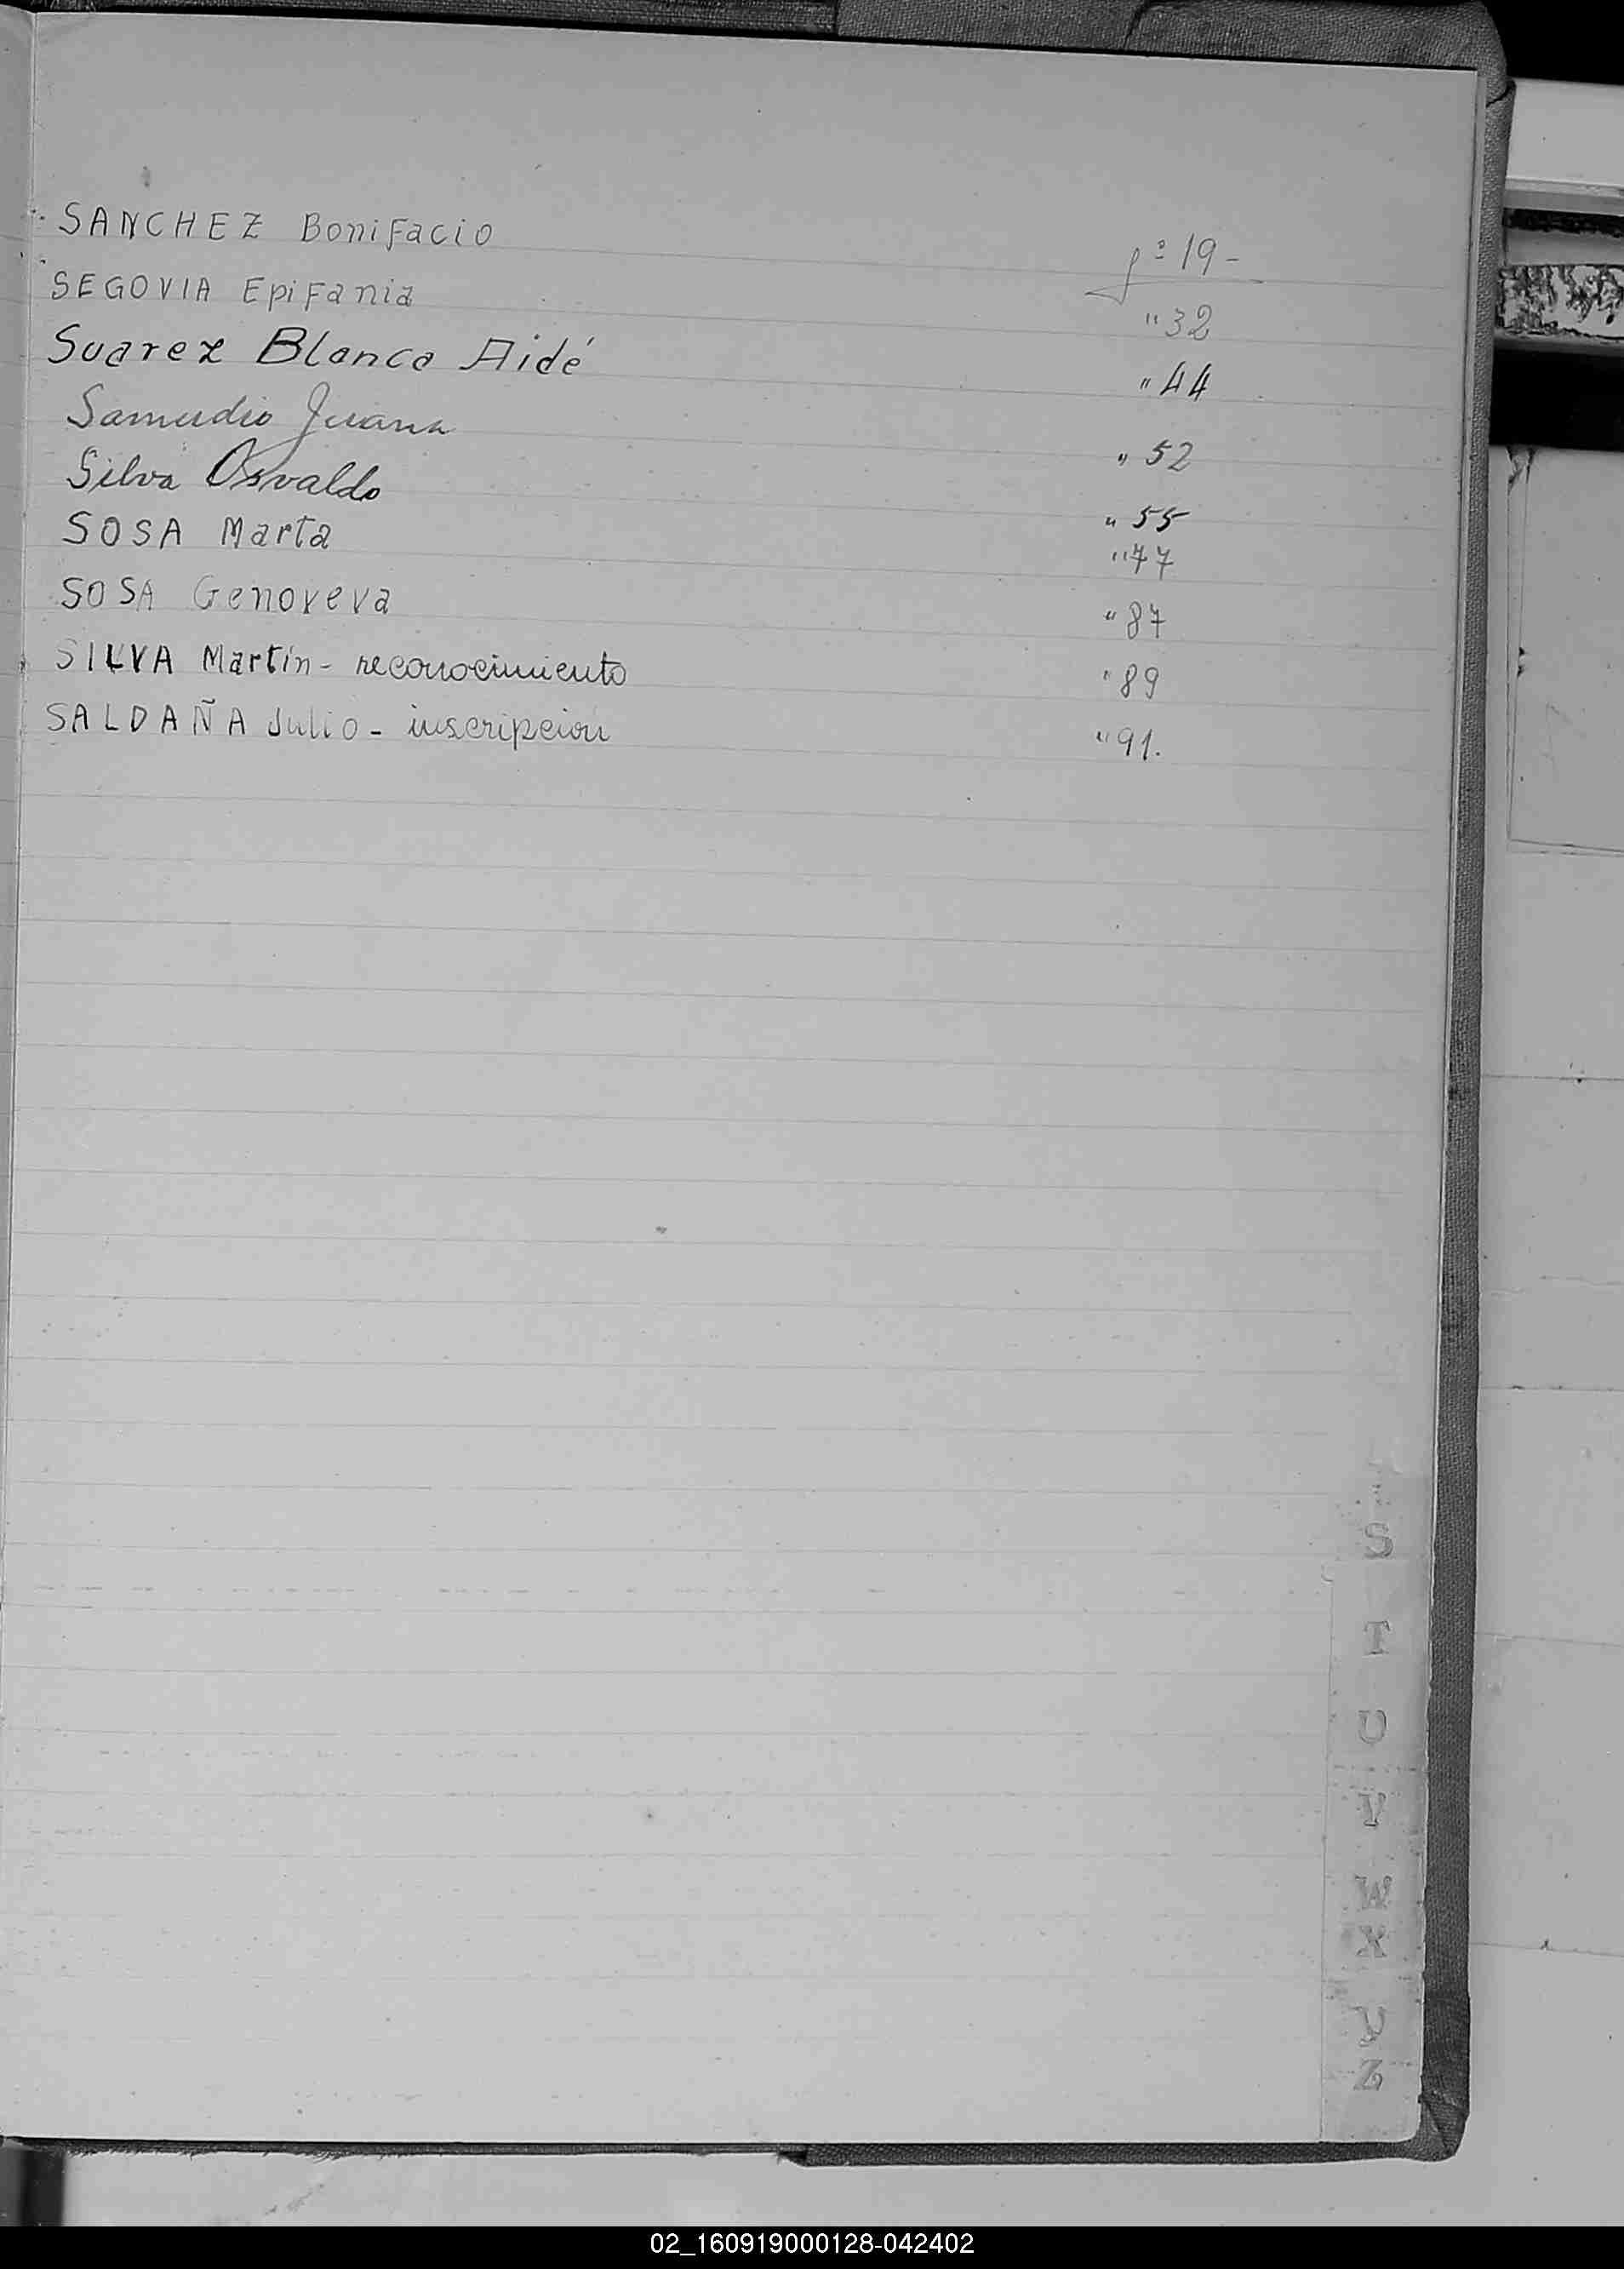 SANCHEZ Bonifacio fº 19-
SEGOVIA Epifania " 32
Suarez Blanca Aidé " 44
Samudio Juana " 52
Silva Osvaldo " 55
SOSA Marta " 77
SOSA Genoveva " 87
SILVA Martín - reconocimiento " 89
SALDAÑA Julio - inscripcion " 91.
S
T
U
V
W
X
Y
Z
02_160919000128-042402